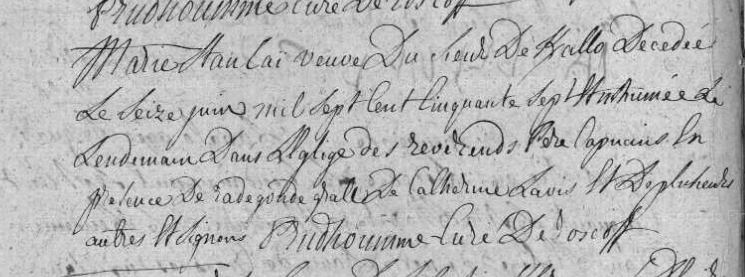 Prudhoumme Curé De roscoff
Marie Hanlai veuve Du sieur De Kallo Decedée
Le seize juin mil sept Cent Cinquante sept Et inhumée Le
Lendemain Dans L'Eglize des reverends Pere Capucins En
presence De radegonde De Catherine Et De plusieurs
autres Et signons Prudhoumme Curé De roscoff